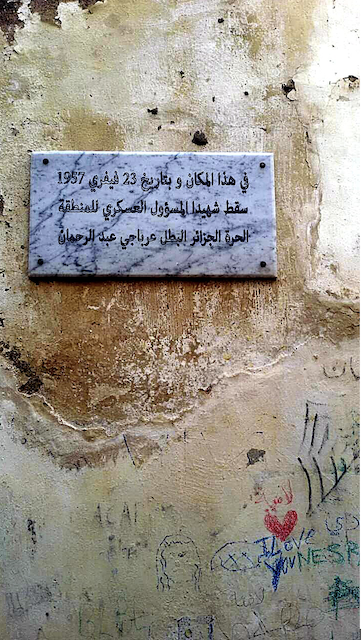 في هذا المكان و بتاريخ 23 فيفري 1957
سقط شهيدا المسؤول العسكري للمنطقة
الحرة الجزائر البطل عرباجي عبد الرحمان
I Love
YOU NESR